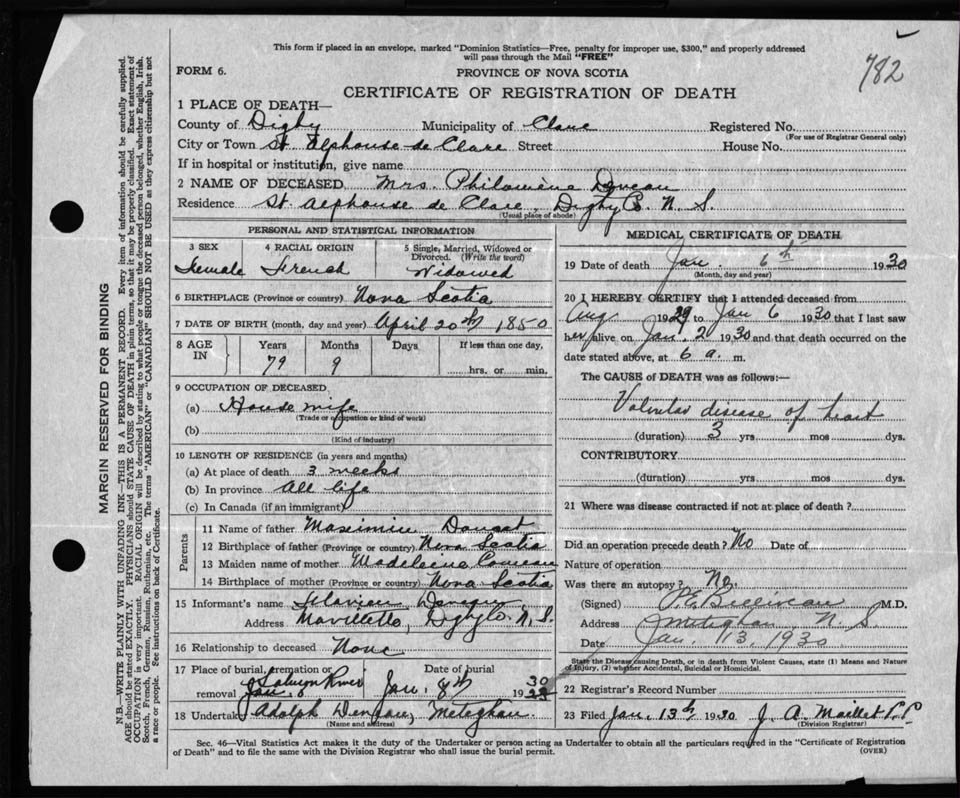 782
This form if placed in an envelope, marked "Dominion Statistics—Free, penalty for improper use, $300," and properly addressed
will pass through the Mail "FREE"
FORM 6.
PROVINCE OF NOVA SCOTIA
CERTIFICATE OF REGISTRATION OF DEATH
1 PLACE OF DEATH—
County of Digby Municipality of Clare Registered No.
(For use of Registrar General only)
City or Town St. Alphonse de Clare Street House No.
If in hospital or institution, give name
2 NAME OF DECEASED Mrs. Philomène Deveau
Residence St Alphonse de Clare, Digby Co. N. S.
(Usual place of abode)
PERSONAL AND STATISTICAL INFORMATION
3 SEX 4 RACIAL ORIGIN 5 Single, Married, Widowed or
Divorced. (Write the word)
Female French Widowed
6 BIRTHPLACE (Province or country) Nova Scotia
7 DATE OF BIRTH (month, day and year) April 20th 1850
8 AGE IN Years Months Days If less than one day,
79 9 hrs. or min.
9 OCCUPATION OF DECEASED
(a) House wife
(Trade or occupation or kind of work)
(b)
(Kind of industry)
10 LENGTH OF RESIDENCE (in years and months)
(a) At place of death 3 weeks
(b) In province All life
(c) In Canada (if an immigrant)
Parents
11 Name of father Maximin
12 Birthplace of father (Province or country) Nova Scotia
13 Maiden name of mother Madeleine Comeau
14 Birthplace of mother (Province or country) Nova Scotia
15 Informant's name Flavien Deveau
Address Mavillette, Digby Co. N. S.
16 Relationship to deceased None
17 Place of burial, cremation or removal Salmon River
Jan. 8
Date of burial
Jan. 8th 1930
18 Undertaker Adolph Deveau, Meteghan
(Name and address)
MEDICAL CERTIFICATE OF DEATH
19 Date of death Jan. 6th 1930
(Month, day and year)
20 I HEREBY CERTIFY that I attended deceased from
Aug 1929 to Jan 6 1930 that I last saw
her alive on Jan. 2 1930 and that death occurred on the
date stated above, at 6 a. m.
The CAUSE of DEATH was as follows:—
Valvular disease of heart
(duration) 3 yrs. mos dys.
CONTRIBUTORY
(duration) yrs. mos dys.
21 Where was disease contracted if not at place of death?
Did an operation precede death? No Date of
Nature of operation
Was there an autopsy? No.
(Signed) P.E. Belliveau M.D.
Address Meteghan N. S
Date Jan. 13 1930
State the Disease causing Death, or in death from Violent Causes, state (1) Means and Nature
of Injury, (2) whether Accidental, Suicidal or Homicidal.
22 Registrar's Record Number
23 Filed Jan. 13th 1930 J. A. Maillet P.P
(Division Registrar)
Sec. 46—Vital Statistics Act makes it the duty of the Undertaker or person acting as Undertaker to obtain all the particulars required in the "Certificate of Registration
of Death" and to file the same with the Division Registrar who shall issue the burial permit.
(OVER)
MARGIN RESERVED FOR BINDING
N.B.—WRITE PLAINLY WITH UNFADING INK—THIS IS A PERMANENT RECORD. Every item of information should be carefully supplied.
AGE should be stated EXACTLY. PHYSICIANS should STATE CAUSE OF DEATH in plain terms, so that it may be properly classified. Exact statement of
OCCUPATION is very important. RACIAL ORIGIN will be described by stating to what people or tongue the deceased person belonged, whether English, Irish,
Scotch, French, German, Russian, Ruthenian, etc. The terms "AMERICAN" or "CANADIAN" SHOULD NOT BE USED as they express citizenship but not
a race or people. See instructions on back of Certificate.